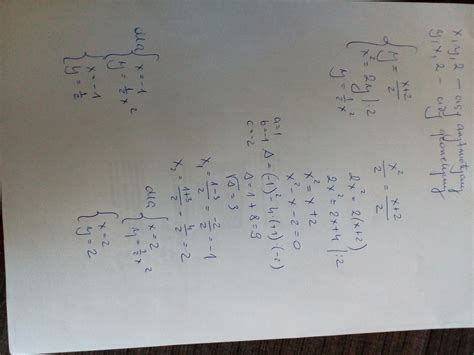 x, y, 2 - ciąg arytmetyczny
y, x, 2 - ciąg geometryczny
y = \frac{x+2}{2}
x² = 2y |:2
y = \frac{1}{2}x²
\frac{x²}{2} = \frac{x+2}{2}
2x² = 2(x+2)
2x² = 2x+4 |:2
x² = x+2
x² - x - 2 = 0
a=1
b=-1 Δ = (-1)² - 4·(+1)·(-2)
c=-2 Δ = 1+8 = 9
√Δ = 3
x₁ = \frac{1-3}{2} = \frac{-2}{2} = -1
x₂ = \frac{1+3}{2} = \frac{4}{2} = 2
dla x = -1
y = \frac{1}{2}x²
x = -1
y = \frac{1}{2}
dla x = 2
y = \frac{1}{2}x²
x = 2
y = 2